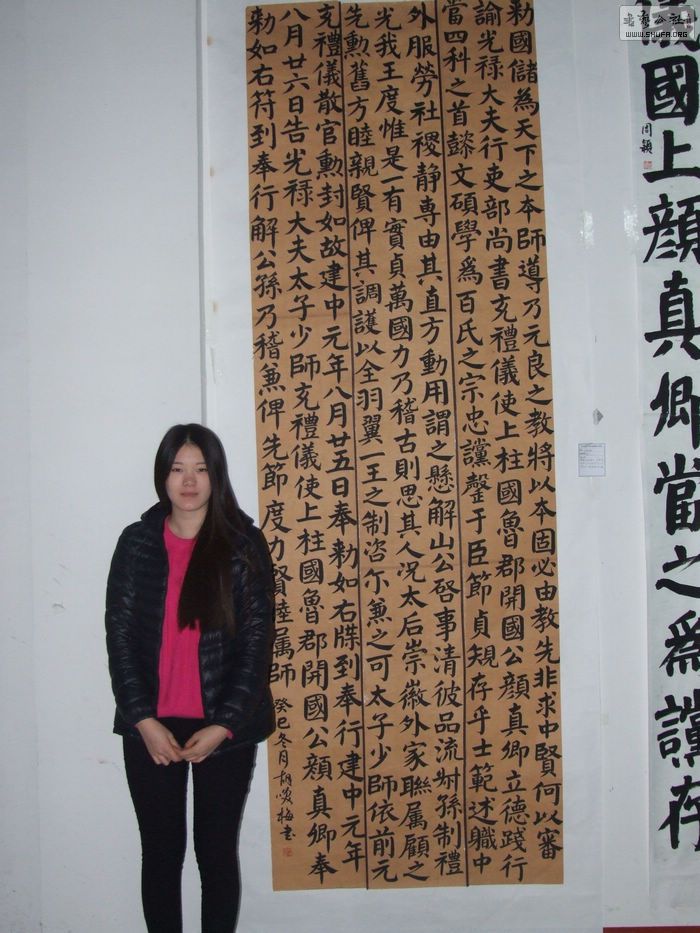 勑國儲為天下之本師導乃元良之教將以本固必由教先非求中賢何以審
諭光禄大夫行吏部尚書充禮儀使上柱國魯郡開國公顔真卿立德踐行
當四科之首懿文碩學爲百氏之宗忠讜罄于臣節貞規存乎士範述職中
外服勞社稷静専由其直方動用謂之懸解山公啓事清彼品流叔孫制禮
光我王度惟是一有實貞萬國力乃稽古則思其人況太后崇徽外家聯属顧之
先勲舊方睦親賢俾其調護以全羽翼一王之制咨尓兼之可太子少師依前元
充禮儀散官勲封如故建中元年八月廿五日奉勑如右牒到奉行建中元年
八月廿六日告光禄大夫太子少師充禮儀使上柱國魯郡開國公顔真卿奉
勑如右符到奉行解公孫乃稽兼俾先節度力賢睦属師
癸巳冬月胡笑梅書
儀國上顔真卿當之爲讜存
周穎
公社
WWW.SHUFA.ORG